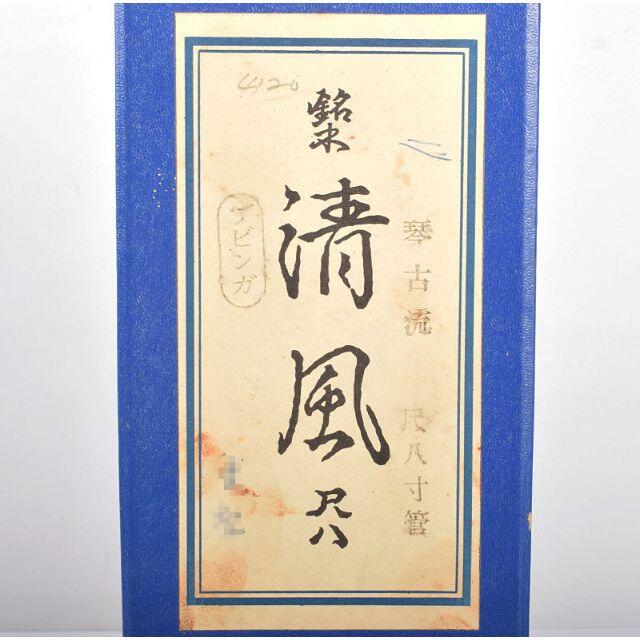 琴古流 尺八寸管
銘木
清風
尺八
4120
アビンガ